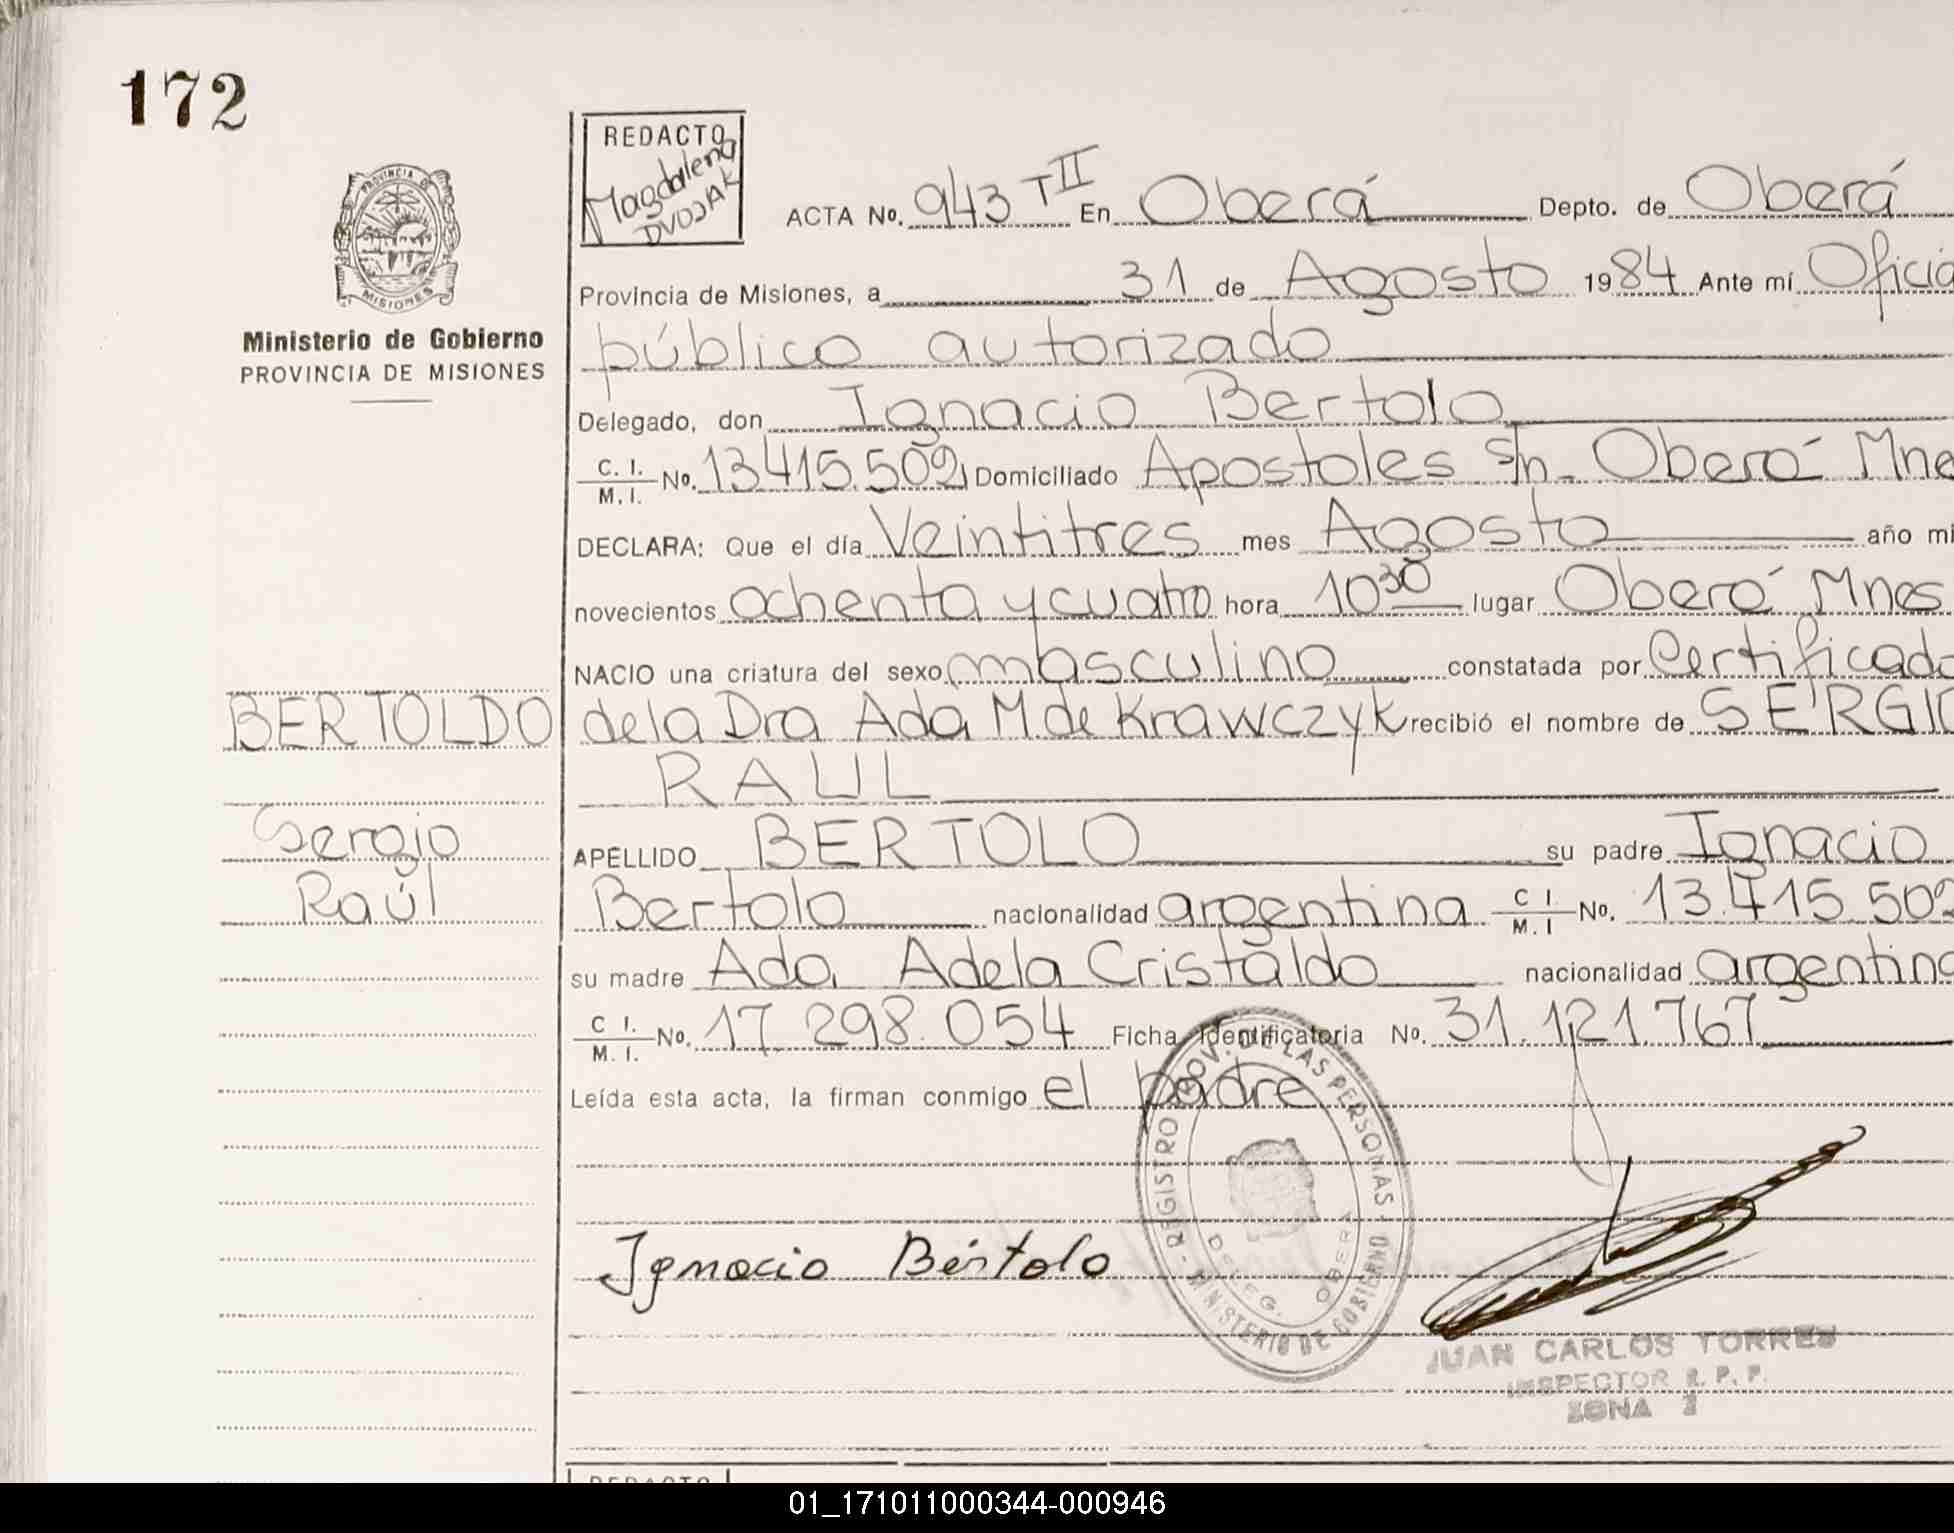 172
REDACTO
Magdalena
DVOJAK
PROVINCIA DE
MISIONES
Ministerio de Gobierno
PROVINCIA DE MISIONES
ACTA No. 943 TII En Oberá Depto. de Oberá
Provincia de Misiones, a 31 de Agosto 1984 Ante mí Oficia
público autorizado
Delegado, don Ignacio Bertolo
C. I. / M. I. No. 13415.509 Domiciliado Apostoles s/n. Oberá Mne
DECLARA: Que el día Veintitres mes Agosto año mi
novecientos ochenta y cuatro hora 10 30 lugar Oberá Mnes
NACIO una criatura del sexo masculino constatada por Certificado
BERTOLDO
de la Dra Ada M. de Krawczyk recibió el nombre de SERGIO
RAUL
Sergio
Raúl
APELLIDO BERTOLO su padre Ignacio
Bertolo nacionalidad argentina C I. / M. I No. 13.415 509
su madre Ada Adela Cristaldo nacionalidad argentina
C I. / M. I. No. 17.298.054 Ficha Identificatoria No. 31.121.767
Leída esta acta, la firman conmigo el padre
REGISTRO PROV. DE LAS PERSONAS - MINISTERIO DE GOBIERNO -
DELEG. OBERA
Ignacio Bértolo
JUAN CARLOS TORRES
INSPECTOR R. P. P.
ZONA 2
REDACTO
01_171011000344-000946